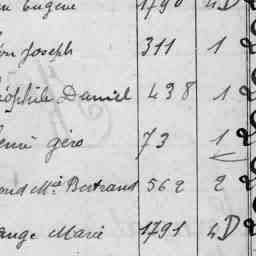 Eugène 1790 4D
Joseph 311 1
éophile Daniel 438 1
géro 73 1
ond Mie Bertrand 562 2
ange Marie 1791 4D